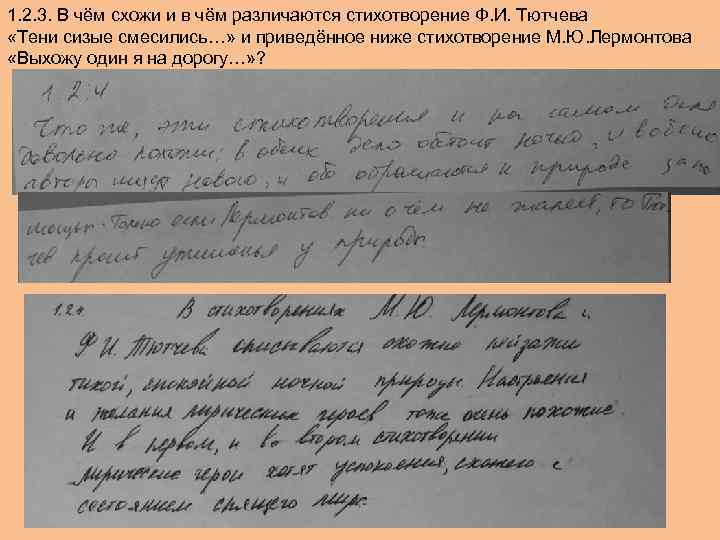 1. 2. 3. В чём схожи и в чём различаются стихотворение Ф.И. Тютчева
«Тени сизые смесились…» и приведённое ниже стихотворение М.Ю.Лермонтова
«Выхожу один я на дорогу…»?
1.2.4
Что же, эти стихотворения и на самом деле
довольно похожи: в обеих дело обстоит ночью, и в обеих
авторы ищут нового, и оба обращаются к природе за по
мощью. Только если Лермонтов ни о чём не жалеет, то Тют
чев просит у природы.
1.2.4 В стихотворениях М.Ю. Лермонтова и
Ф.И. Тютчева описываются схожие пейзажи
тихой, спокойной ночной природы. Настроения
и желания лирических героев тоже очень похожие.
И в первом, и во втором стихотворении
лирические герои хотят успокоения, схожего с
состоянием спящего мира.